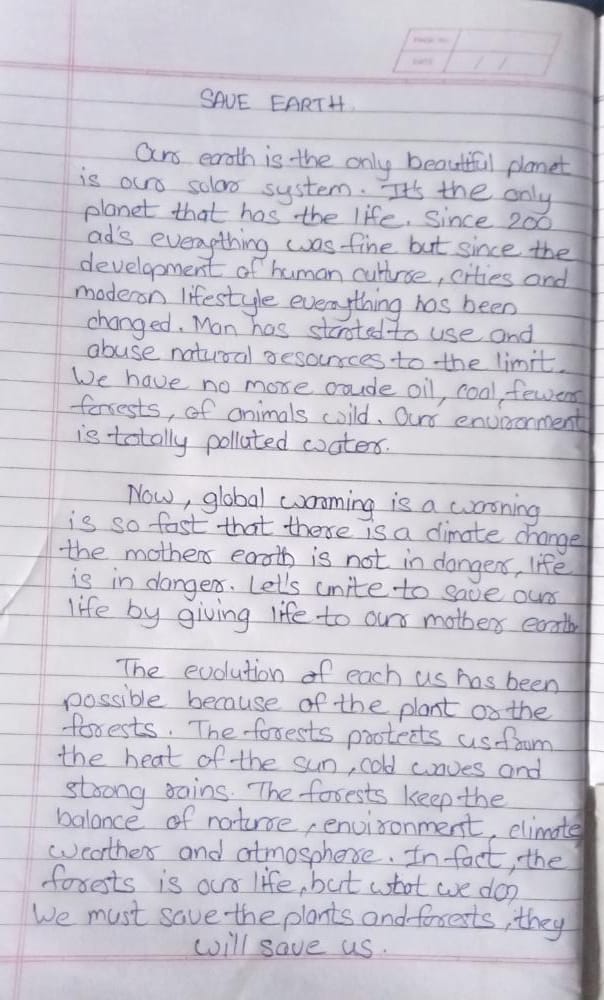 PAGE NO.
DATE / /
SAVE EARTH
Our earth is the only beautiful planet
is our solar system. It's the only
planet that has the life. Since 200
ad's everything was fine but since the
development of human culture, cities and
modern lifestyle everything has been
changed. Man has started to use and
abuse natural resources to the limit.
We have no more crude oil, coal, fewer
forests, of animals wild. Our environment
is totally polluted water.
Now, global warming is a warning
is so fast that there is a climate change
the mother earth is not in danger, life
is in danger. Let's unite to save our
life by giving life to our mother earth
The evolution of each us has been
possible because of the plant or the
forests. The forests protects us from
the heat of the sun, cold waves and
strong rains. The forests keep the
balance of nature, environment, climate
weather and atmosphere. In fact, the
forests is our life, but what we do?
We must save the plants and forests, they
will save us.